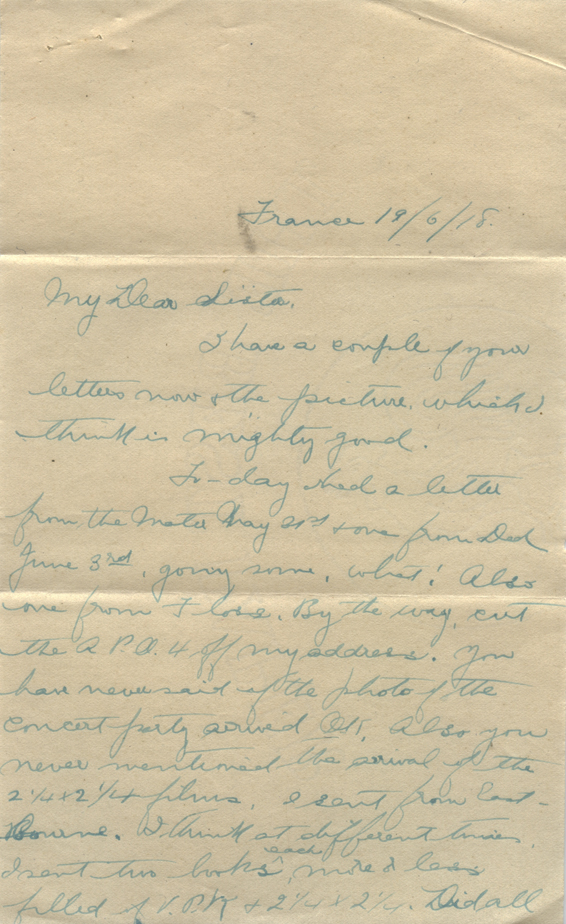 France 19/6/18.
My Dear Sista.
I have a couple of your
letters now & the picture, which I
think is mighty good.
To-day I had a letter
from the Mater May 21st & one from Dad
June 3rd, going some, what! Also
one from Floss. By the way, cut
the A.P.O. 4 off my address. You
have never said if the photo of the
concert party arrived OK, Also you
never mentioned the arival of the
2 1/4 x 2 1/4 films, I sent from East-
Bourne. I think at different times,
I sent two books each, more or less
filled of V.P.K & 2 1/4 x 2 1/4. Did all